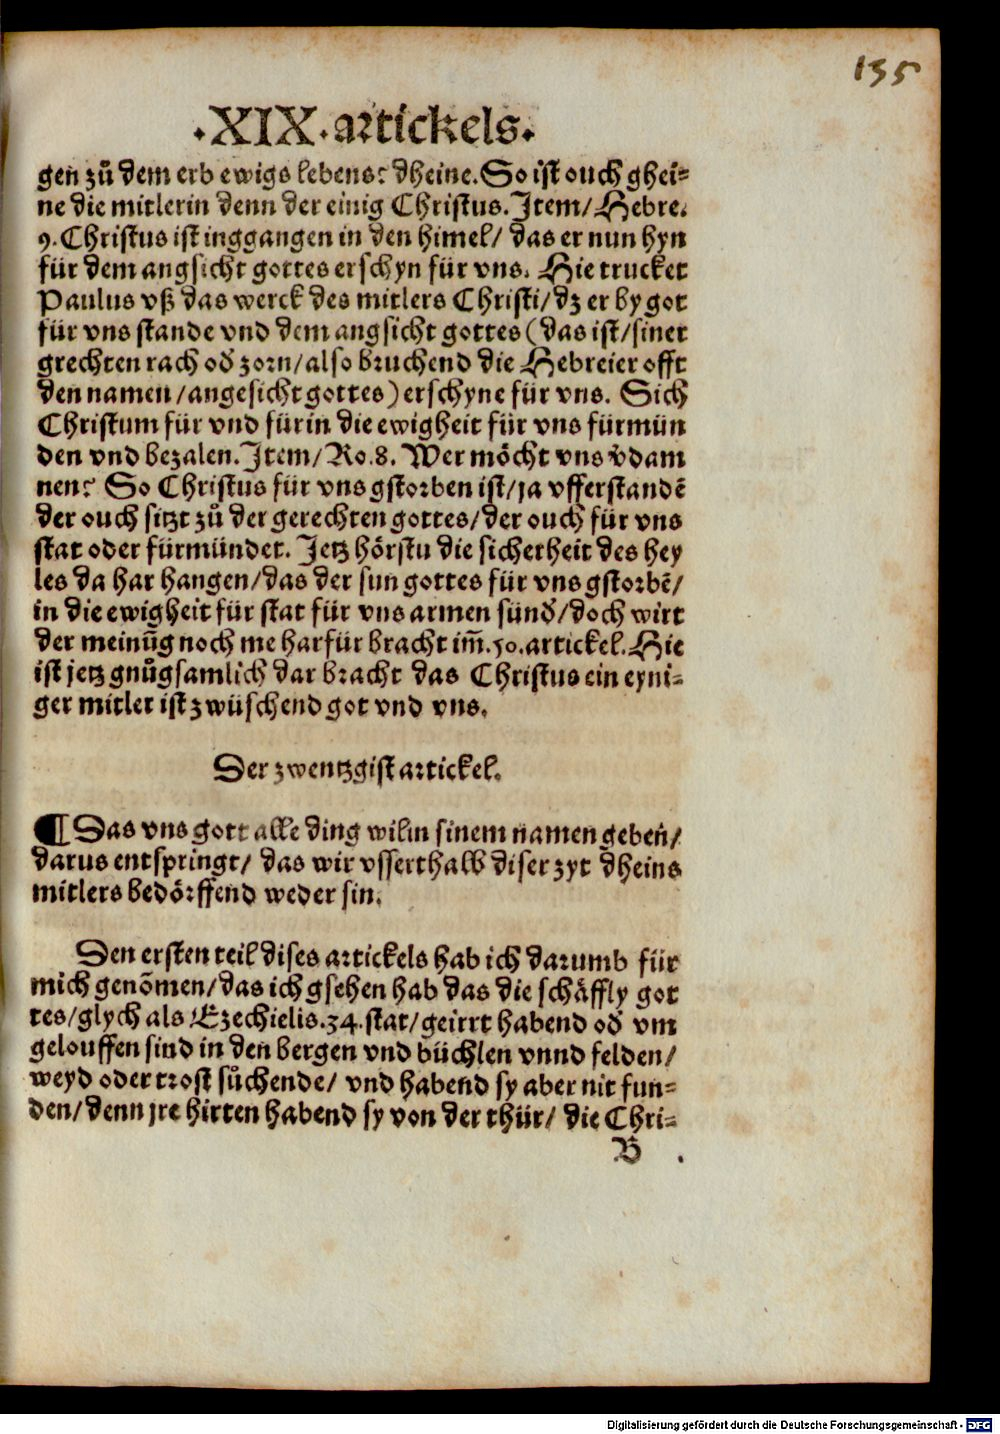 135
·XIX·artickels·
gen zů dem erb ewigs lebens? dheine. So ist ouch ghei⸗
ne die mitlerin denn der einig Christus. Item/ Hebre.
9. Christus ist inggangen in den himel/ das er nun hyn
für dem angsicht gottes erschyn für vns. Hie trucket
Paulus vß das werck des mitlers Christi/ dz er by got
für vns stande vnd dem angsicht gottes (das ist/ siner
grechten rach od̕ zorn/ also bruchend die Hebreier offt
den namen/ angesicht gottes) erschyne für vns. Sich
Christum für vnd für in die ewigheit für vns fürmün
den vnd bezalen. Item/ Ro. 8. Wer möcht vns v̕dam
nen? So Christus für vns gstorben ist/ ja vfferstandē
der ouch sitzt zů der gerechten gottes/ der ouch für vns
stat oder fürmündet. Jetz hörstu die sicherheit des hey
les da har hangen/ das der sun gottes für vns gstorbē/
in die ewigheit für stat für vns armen sünd̕/ doch wirt
der meinūg noch me harfür bracht im̄. 50. artickel. Hie
ist jetz gnůgsamlich dar bracht das Christus ein eyni⸗
ger mitler ist zwüschend got vnd vns.
Der zwentzgist artickel.
¶ Das vns gott alle ding wil in sinem namen geben/
darus entspringt/ das wir vsserthalb diser zyt dheins
mitlers bedörffend weder sin.
Den ersten teil dises artickels hab ich darumb für
mich genōmen/ das ich gsehen hab das die schäffly got
tes/ glych als Ezechielis. 34. stat/ geirrt habend od̕ vm
gelouffen sind in den bergen vnd büchlen vnnd felden/
weyd oder trost sůchende/ vnd habend sy aber nit fun⸗
den/ denn jre hirten habend sy von der thür/ die Chri⸗
B
Digitalisierung gefördert durch die Deutsche Forschungsgemeinschaft - DFG